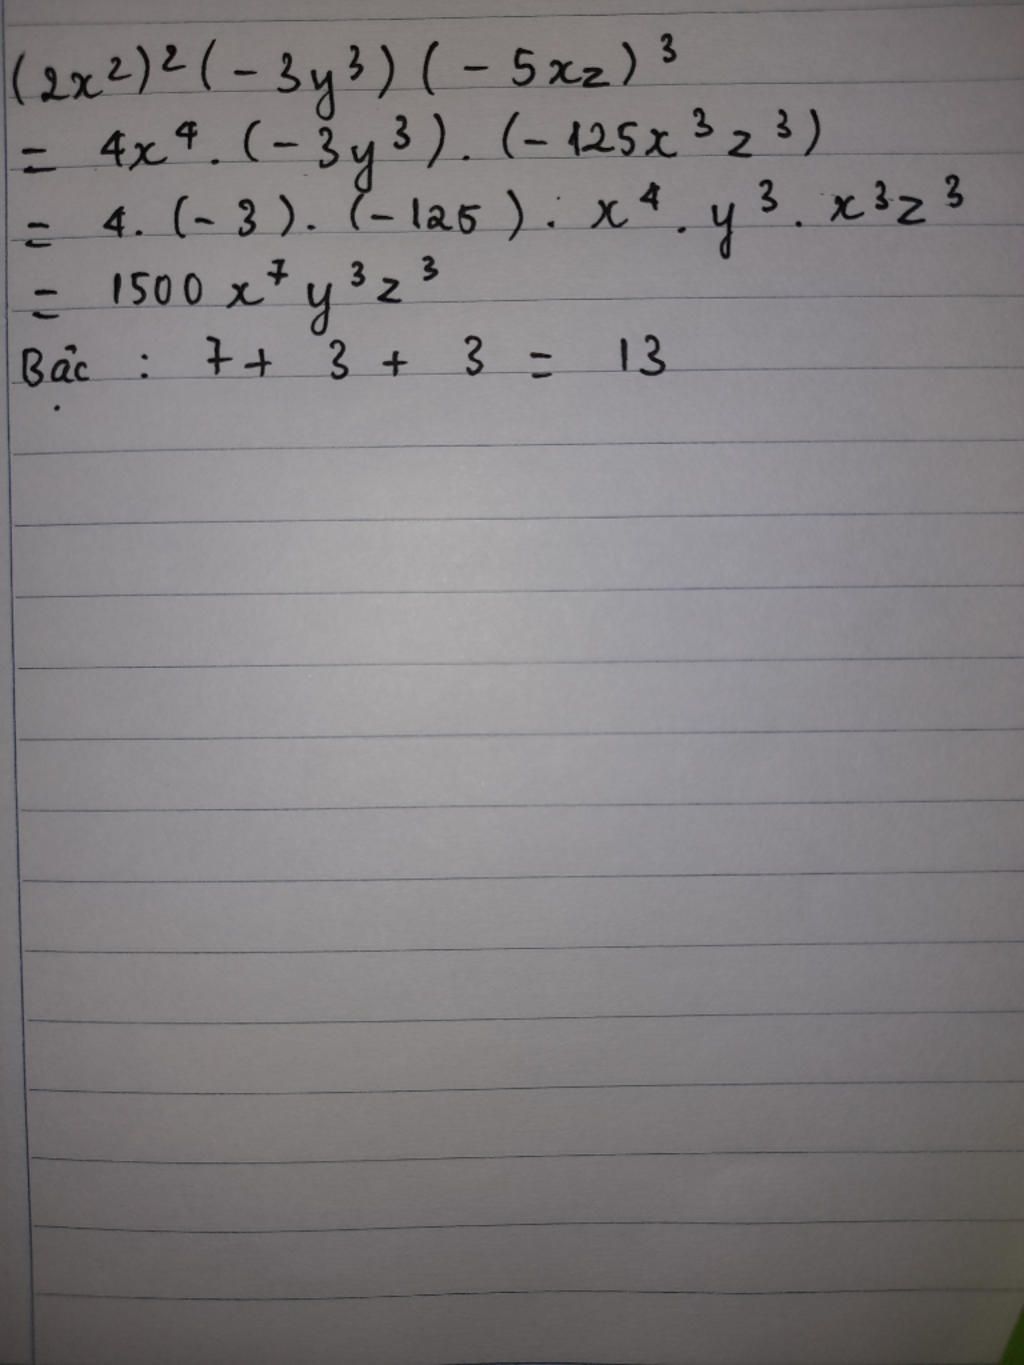 (2x²)²(-3y³)(-5xz)³
= 4x⁴.(-3y³).(-125x³z³)
= 4.(-3).(-125).x⁴.y³.x³z³
= 1500x⁷y³z³
Bậc : 7 + 3 + 3 = 13